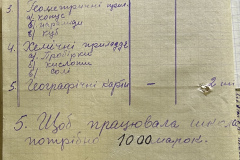 3. Геометричні прил.
а) конус
б) піраміди
в) куб
4. Хемичні приладдя
а) Пробірки
б) кислоти
в) солі
5. Географічні карти - 2
5. Щоб працювала школа
потрібно 1000 марок.